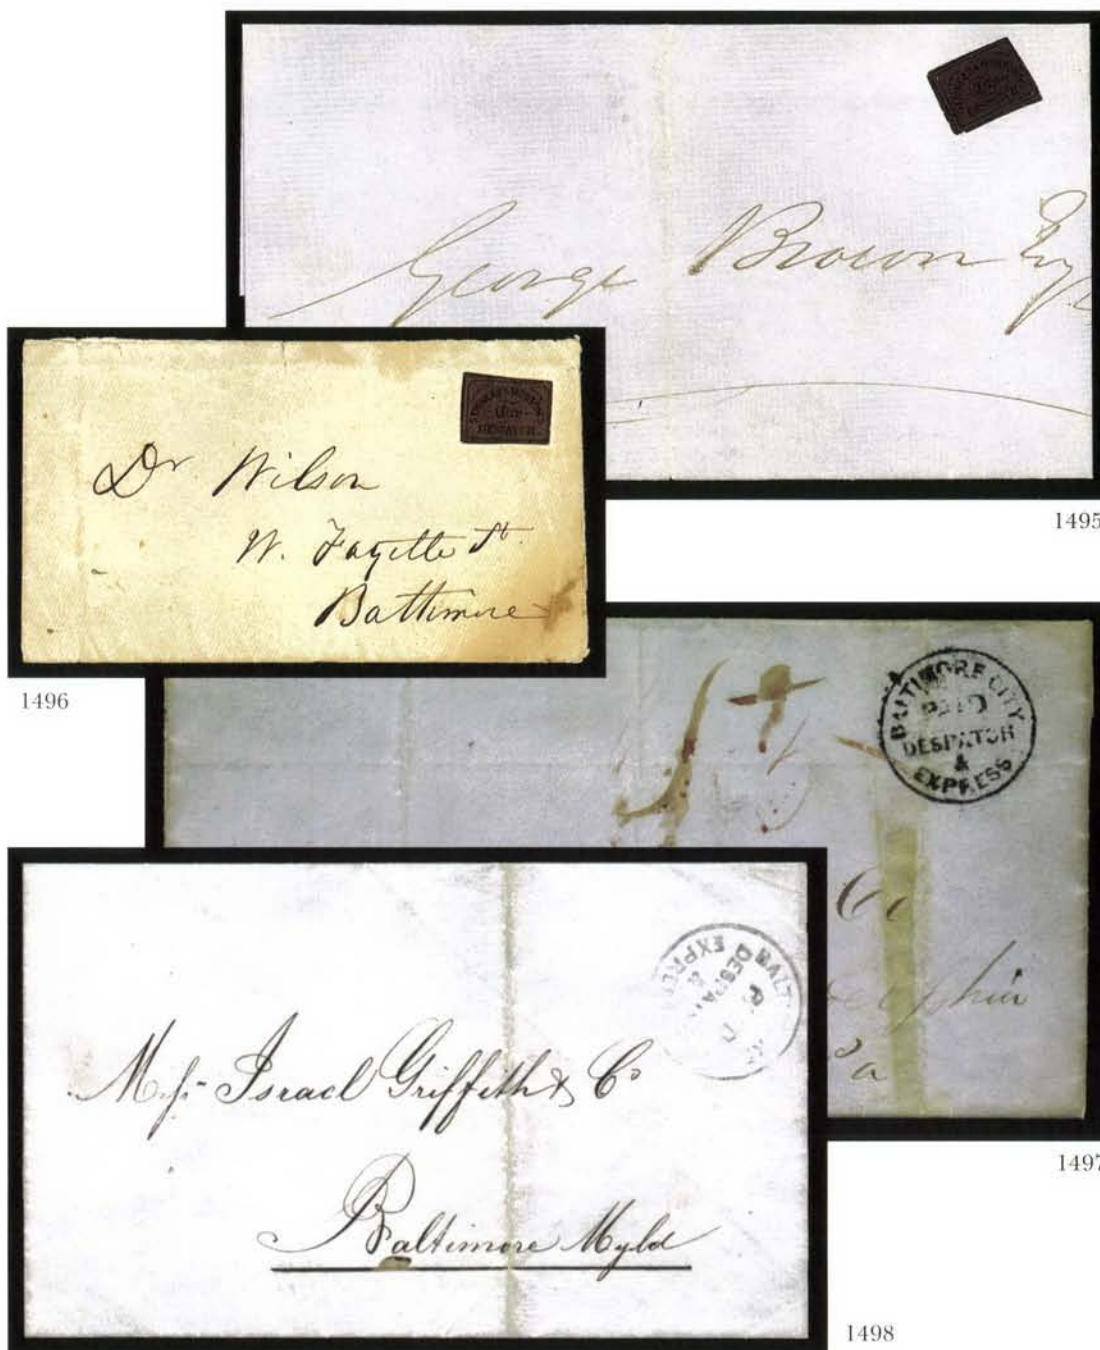 George Brown Esq
1495
CITY
DESPATCH
Dr. Wilson
W. Fayette St.
Baltimore
1496
BALTIMORE CITY
PAID
DESPATCH
&
EXPRESS
Co
1497
DESPA
&
Mess. Israel Griffith & Co
Baltimore Myld
1498